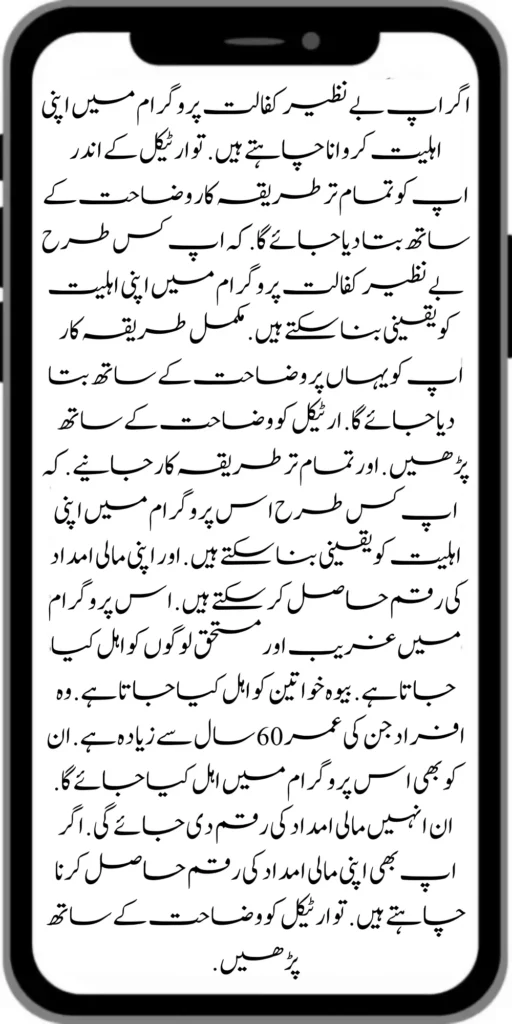 اگر اپ بے نظیر کفالت پروگرام میں اپنی
اہلیت کروانا چاہتے ہیں. تو ارٹیکل کے اندر
اپ کو تمام تر طریقہ کار وضاحت کے
ساتھ بتا دیا جائے گا. کہ اپ کس طرح
بے نظیر کفالت پروگرام میں اپنی اہلیت
کو یقینی بنا سکتے ہیں. مکمل طریقہ کار
اپ کو یہاں پر وضاحت کے ساتھ بتا
دیا جائے گا. ارٹیکل کو وضاحت کے ساتھ
پڑھیں. اور تمام تر طریقہ کار جانیے. کہ
اپ کس طرح اس پروگرام میں اپنی
اہلیت کو یقینی بنا سکتے ہیں. اور اپنی مالی امداد
کی رقم حاصل کر سکتے ہیں. اس پروگرام
میں غریب اور مستحق لوگوں کو اہل کیا
جاتا ہے. بیوہ خواتین کو اہل کیا جاتا ہے. وہ
افراد جن کی عمر 60 سال سے زیادہ ہے. ان
کو بھی اس پروگرام میں اہل کیا جائے گا.
ان انہیں مالی امداد کی رقم دی جائے گی. اگر
اپ بھی اپنی مالی امداد کی رقم حاصل کرنا
چاہتے ہیں. تو ارٹیکل کو وضاحت کے ساتھ
پڑھیں.